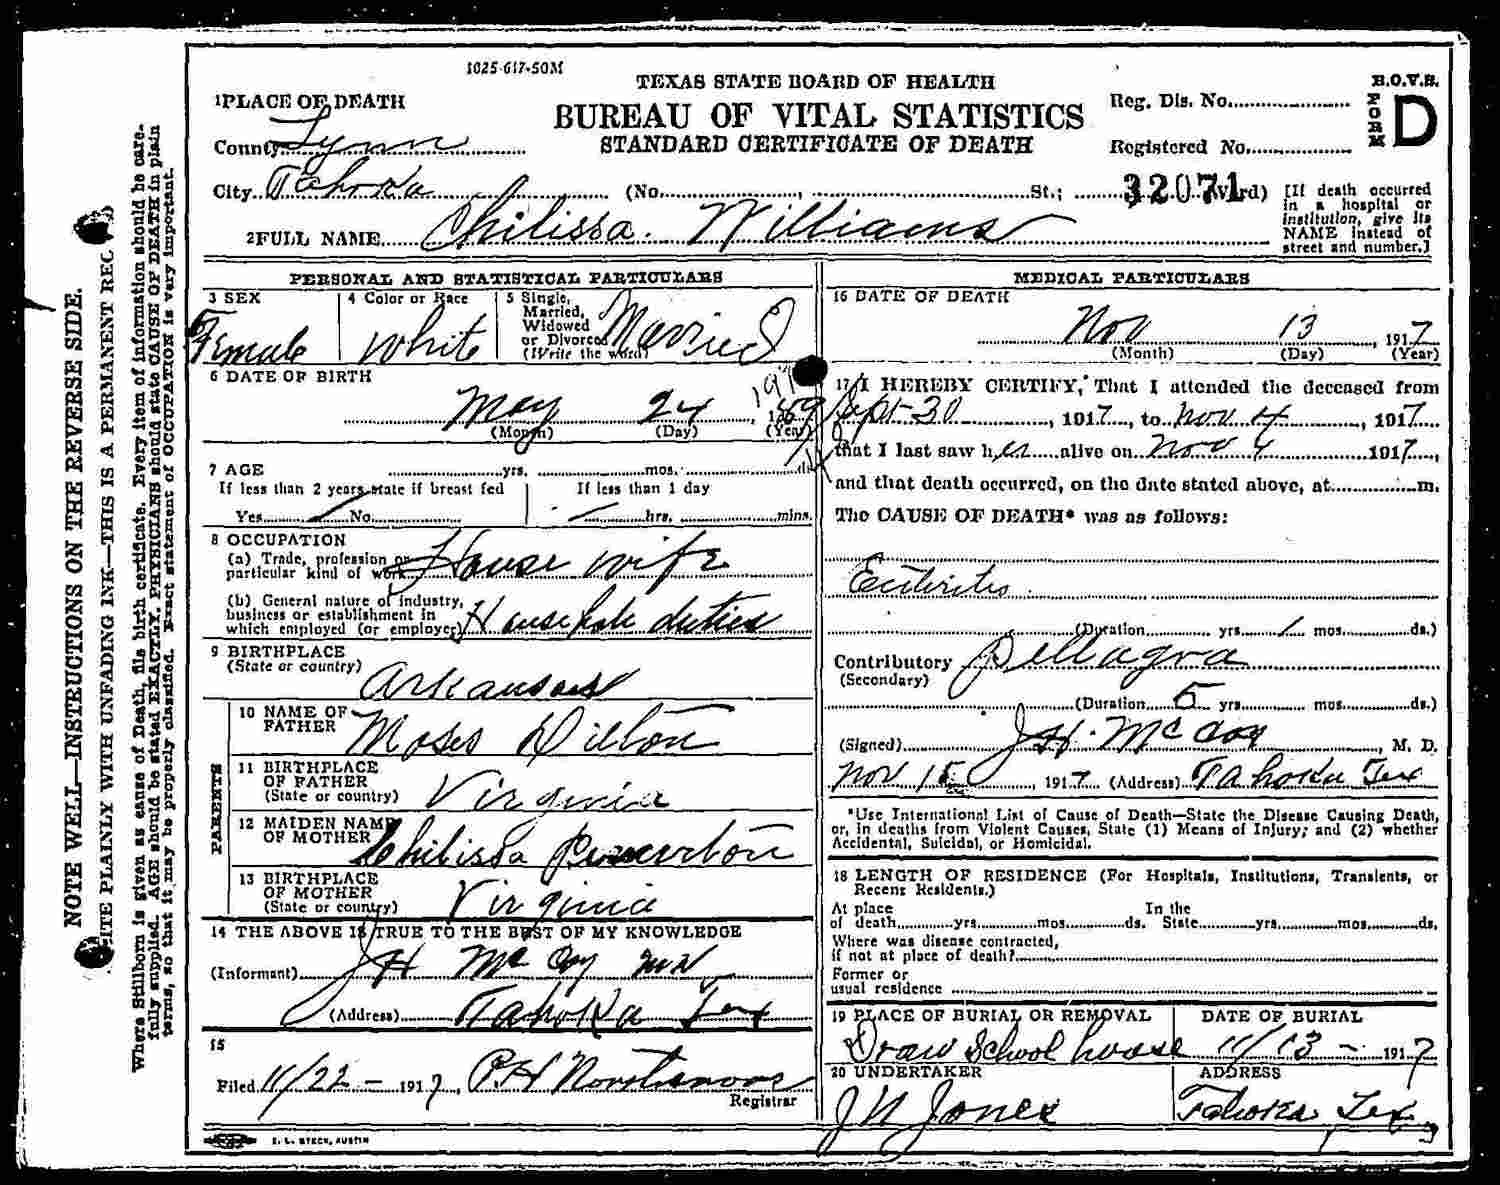 1025-617-50M
TEXAS STATE BOARD OF HEALTH
BUREAU OF VITAL STATISTICS
STANDARD CERTIFICATE OF DEATH
B.O.V.S.
FORM D
Reg. Dis. No.
Registered No.
1 PLACE OF DEATH
County Lynn
City Tahoka (No. , St.; Ward)
32071
[If death occurred in a hospital or institution, give its NAME instead of street and number.]
2 FULL NAME Chilissa Williams
PERSONAL AND STATISTICAL PARTICULARS
3 SEX
Female
4 Color or Race
White
5 Single, Married, Widowed or Divorced (Write the word)
Married
6 DATE OF BIRTH
May 24, 18
(Month) (Day) (Year)
7 AGE yrs. mos. ds.
If less than 2 years state if breast fed
Yes No
If less than 1 day
hrs. mins.
8 OCCUPATION
(a) Trade, profession or particular kind of work House wife
(b) General nature of industry, business or establishment in which employed (or employer) House hole duties
9 BIRTHPLACE
(State or country) Arkansas
PARENTS
10 NAME OF FATHER Moses Dillon
11 BIRTHPLACE OF FATHER
(State or country) Virginia
12 MAIDEN NAME OF MOTHER Chilissa
13 BIRTHPLACE OF MOTHER
(State or country) Virginia
14 THE ABOVE IS TRUE TO THE BEST OF MY KNOWLEDGE
(Informant) J H McCoy
(Address) Tahoka Tex
15
Filed 11/22 - 1917, P.H.
Registrar
E. L. STECK, AUSTIN
MEDICAL PARTICULARS
16 DATE OF DEATH
Nov 13, 1917
(Month) (Day) (Year)
17 I HEREBY CERTIFY, That I attended the deceased from
Sept-30, 1917, to Nov 4, 1917
that I last saw her alive on Nov 4 1917,
and that death occurred, on the date stated above, at m.
The CAUSE OF DEATH* was as follows:
(Duration yrs. 1 mos. ds.)
Contributory Pellagra
(Secondary)
(Duration 5 yrs. mos. ds.)
(Signed) J.H. McCoy, M. D.
Nov 15, 1917 (Address) Tahoka Tex
*Use International List of Cause of Death—State the Disease Causing Death,
or, in deaths from Violent Causes, State (1) Means of Injury; and (2) whether
Accidental, Suicidal, or Homicidal.
18 LENGTH OF RESIDENCE (For Hospitals, Institutions, Transients, or
Recent Residents.)
At place of death yrs. mos. ds. In the State yrs. mos. ds.
Where was disease contracted,
if not at place of death?
Former or
usual residence
19 PLACE OF BURIAL OR REMOVAL
Draw School house
DATE OF BURIAL
11/13 - 1917
20 UNDERTAKER
J N Jones
ADDRESS
Tahoka Tex
NOTE WELL—INSTRUCTIONS ON THE REVERSE SIDE.
ITE PLAINLY WITH UNFADING INK—THIS IS A PERMANENT REC
Where Stillborn is given as cause of Death, file birth certificate. Every item of information should be care-
fully supplied. AGE should be stated EXACTLY. PHYSICIANS should state CAUSE OF DEATH in plain
terms, so that it may be properly classified. Exact statement of OCCUPATION is very important.